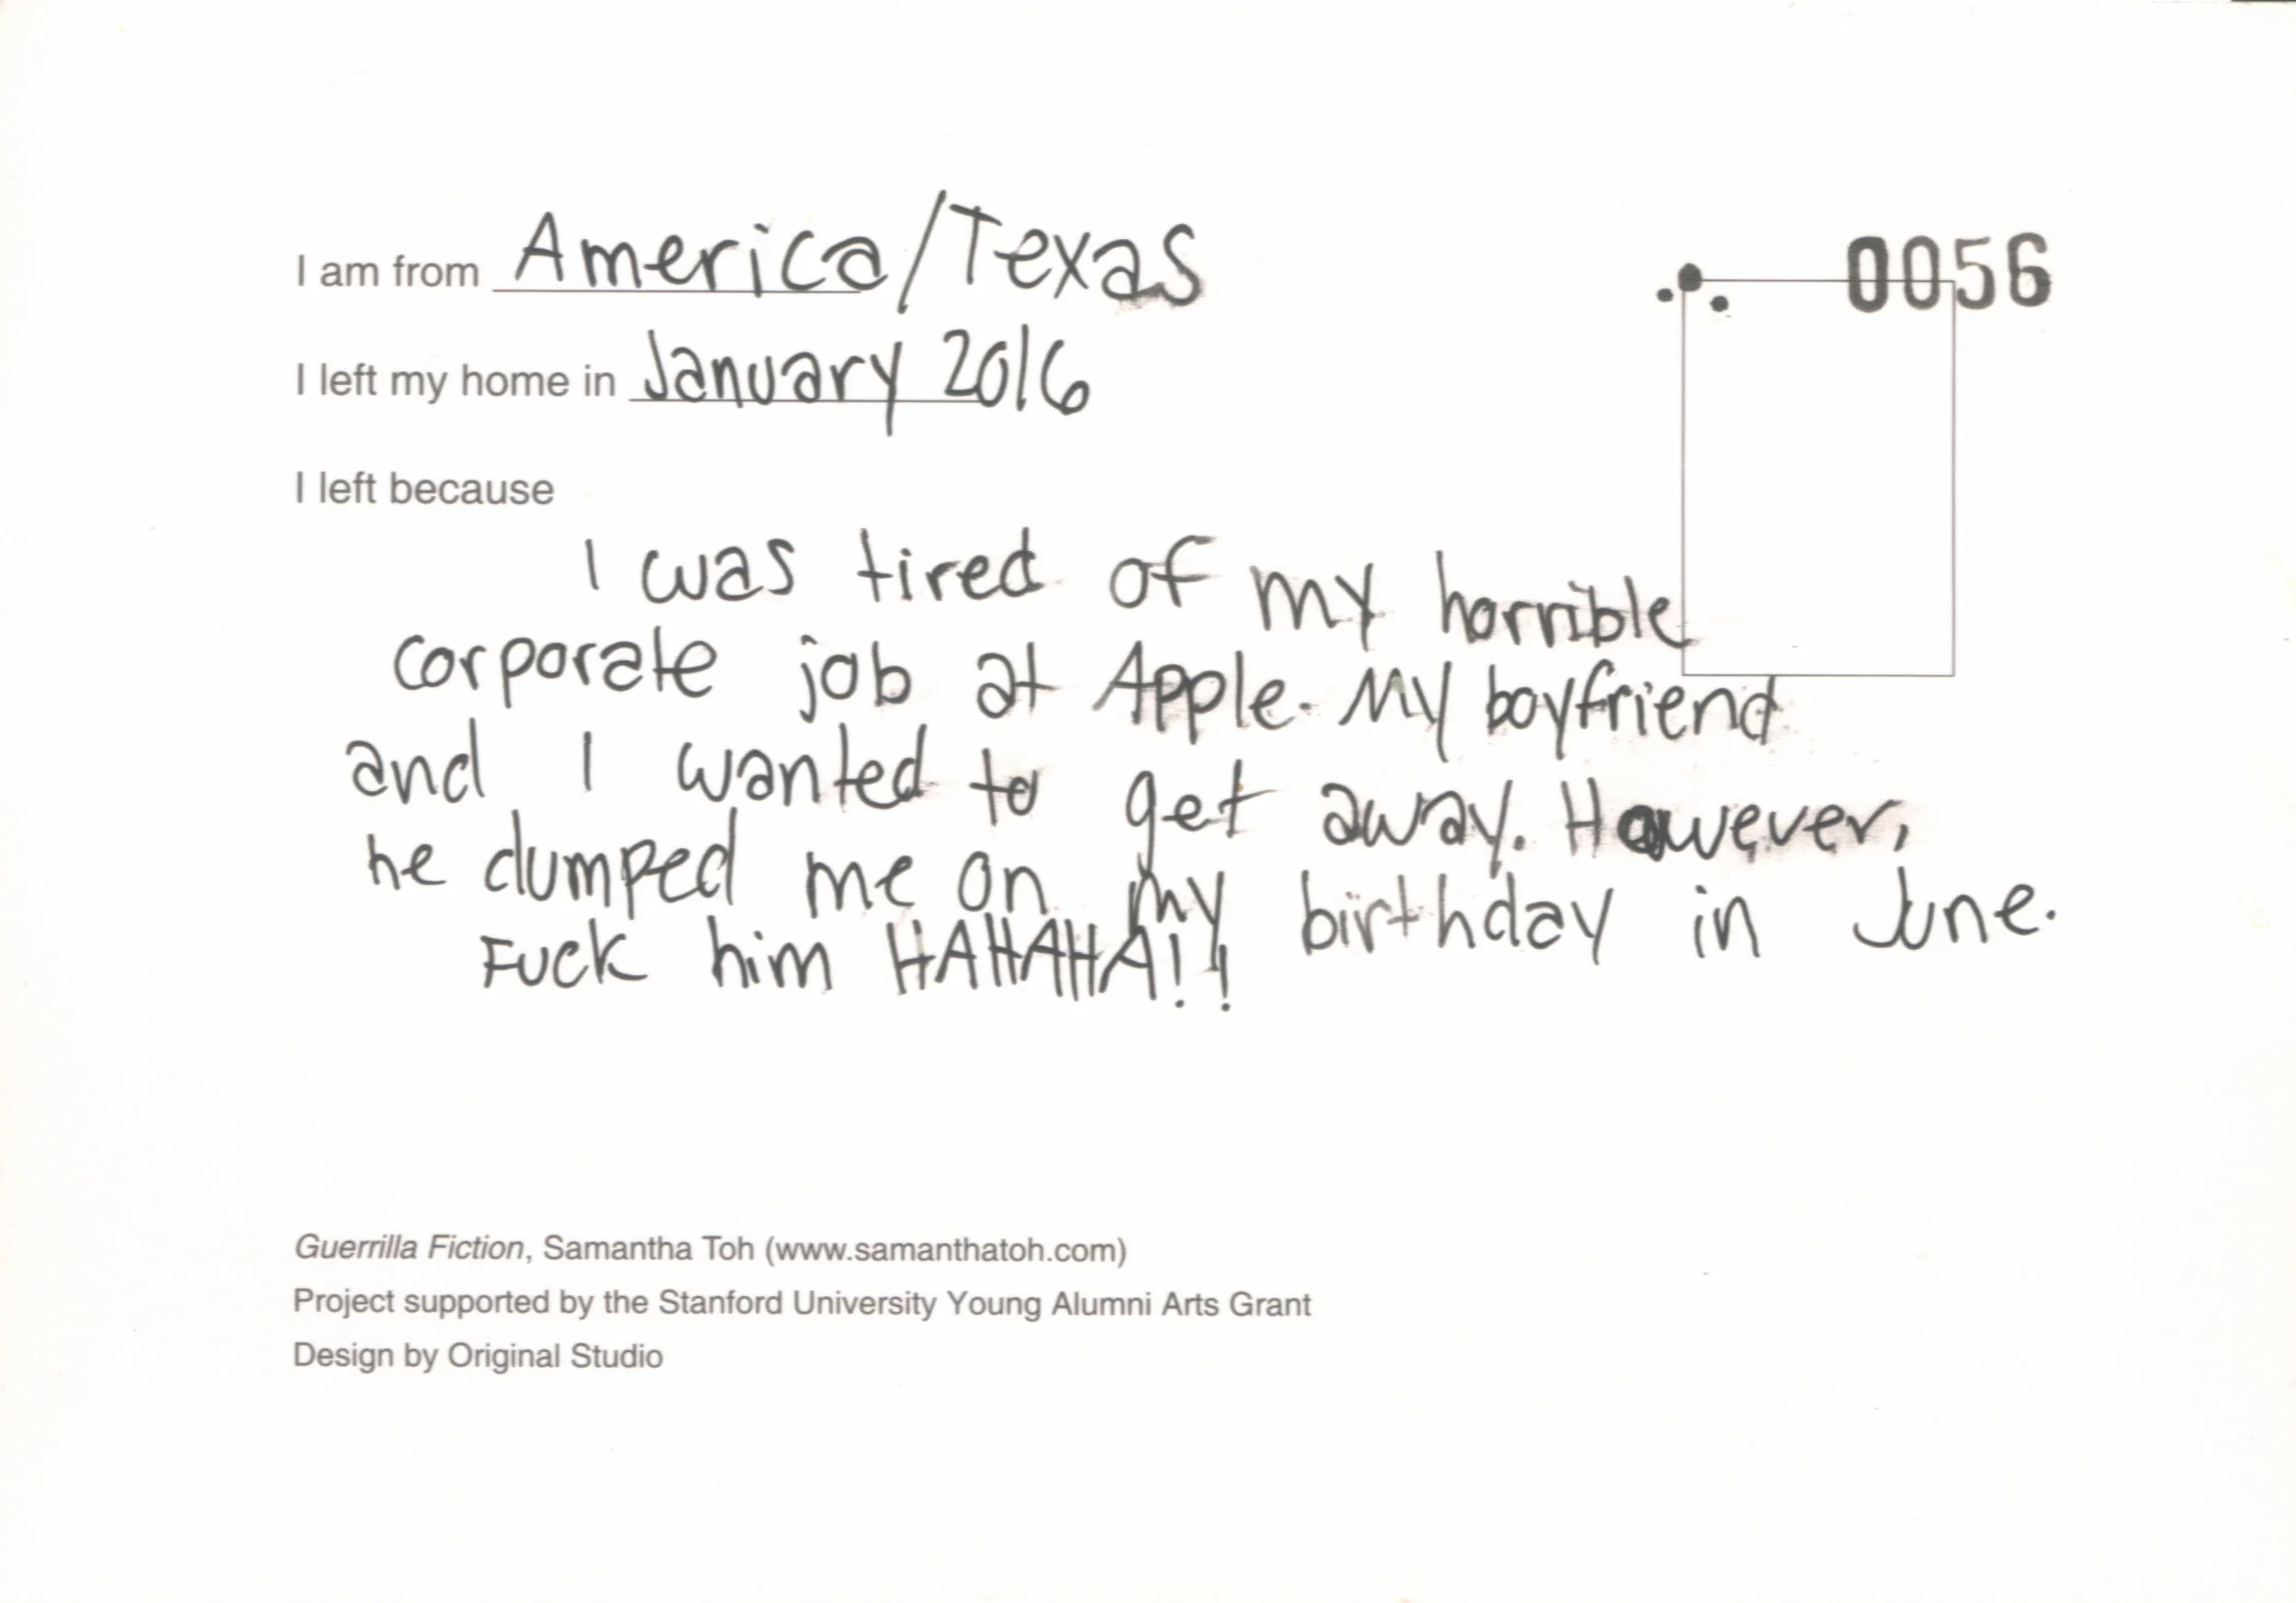 I am from America/Texas
0056
I left my home in January 2016
I left because
I was tired of my horrible
corporate job at Apple. My boyfriend
and I wanted to get away. However,
he dumped me on my birthday in June.
Fuck him HAHAHA!!
Guerrilla Fiction, Samantha Toh (www.samanthatoh.com)
Project supported by the Stanford University Young Alumni Arts Grant
Design by Original Studio